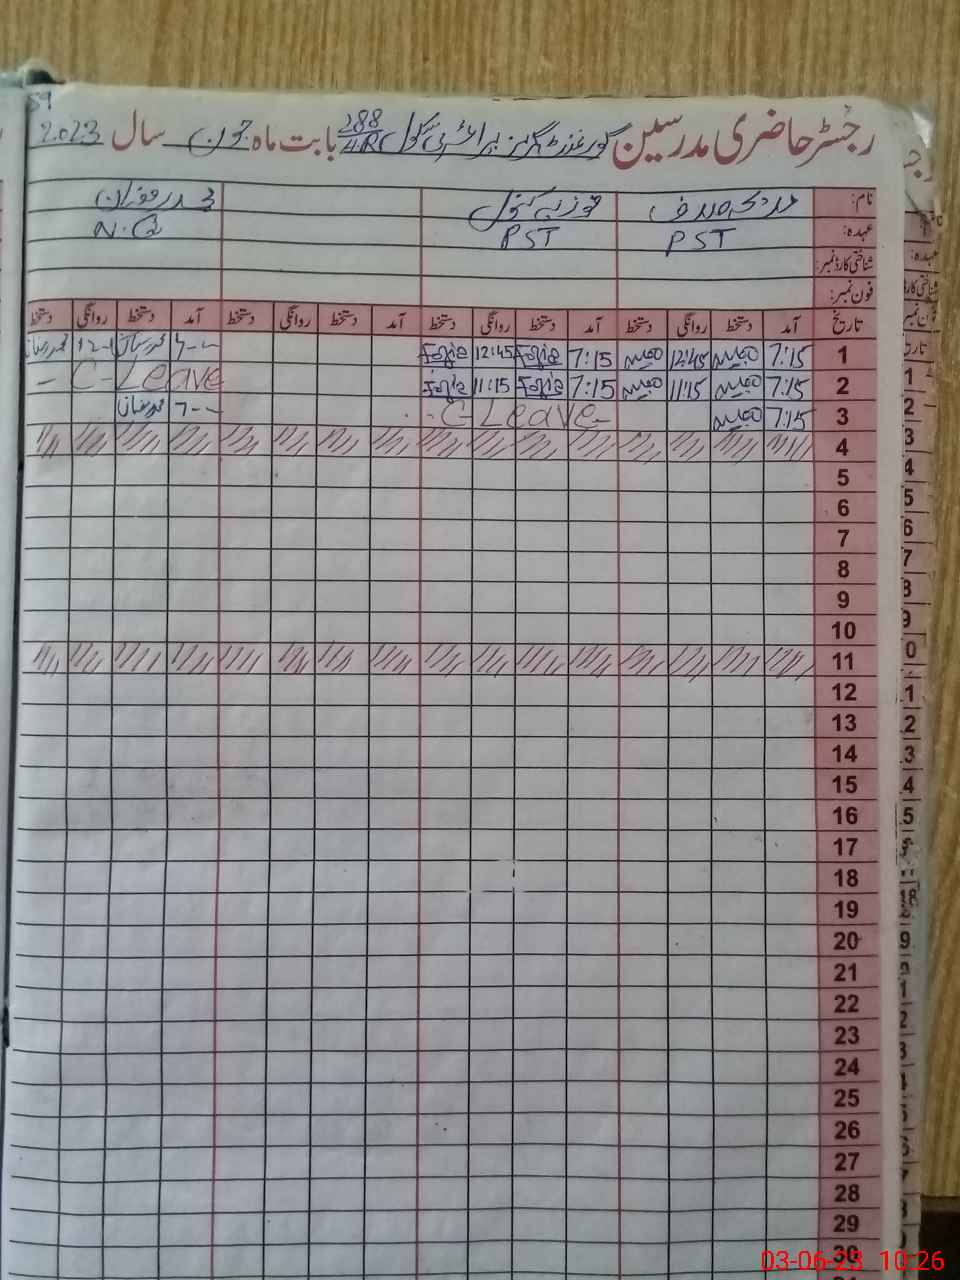 رجسٹر حاضری مدرسین گورنمنٹ گرلز پرائمری سکول 288/4R بابت ماہ جون سال 2023
نام: فوزیہ کنول
عہدہ: PST PST N.Q
شناختی کارڈ نمبر:
فون نمبر:
تاریخ آمد دستخط روانگی دستخط آمد دستخط روانگی دستخط آمد دستخط روانگی دستخط آمد دستخط روانگی دستخط
1 7:15 12:45 7:15 Fozia 12:45 Fozia 7-- محمد رمضان محمد رمضان
2 7:15 11:15 7:15 Fozia 11:15 Fozia C-Leave
3 7:15 C Leave 7-- محمد رمضان
4
5
6
7
8
9
10
11
12
13
14
15
16
17
18
19
20
21
22
23
24
25
26
27
28
29
30
03-06-23 10:26